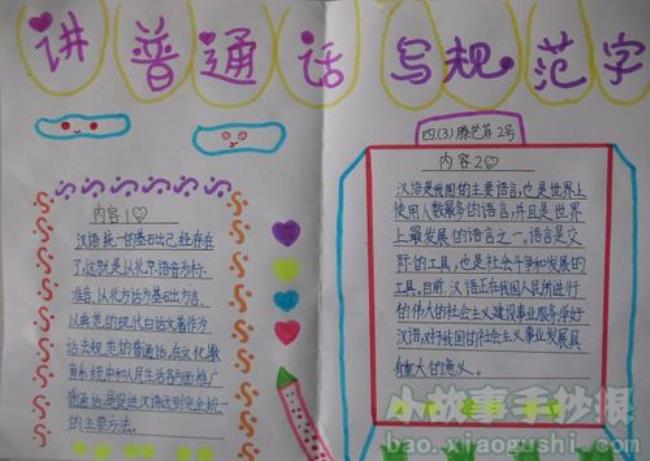 讲普通话 写规范字
四.(3)滕艺菲 2号
内容1
汉语统一的基石出己经存在
了,这就是从北京语音为标
准音、从北方话为基础方言、
以典范的现代白话文著作为
话法规范的普通话,在文化教
育系统中和人民生活各方面推广
普通话,是促进汉语达到完全统一
的主要方法。
内容2
汉语是我国的主要语言,也是世界上
使用人数最多的语言,并且是世界
上最发展的语言之一。语言是交
际的工具,也是社会斗争和发展的
工具。目前,汉语正在我国人民所进行
的伟大的社会主义建设事业服务。学好
汉语,对于我国的社会主义事业发展具
有重大的意义。
小故事手抄报
bao.xiaogushi.com